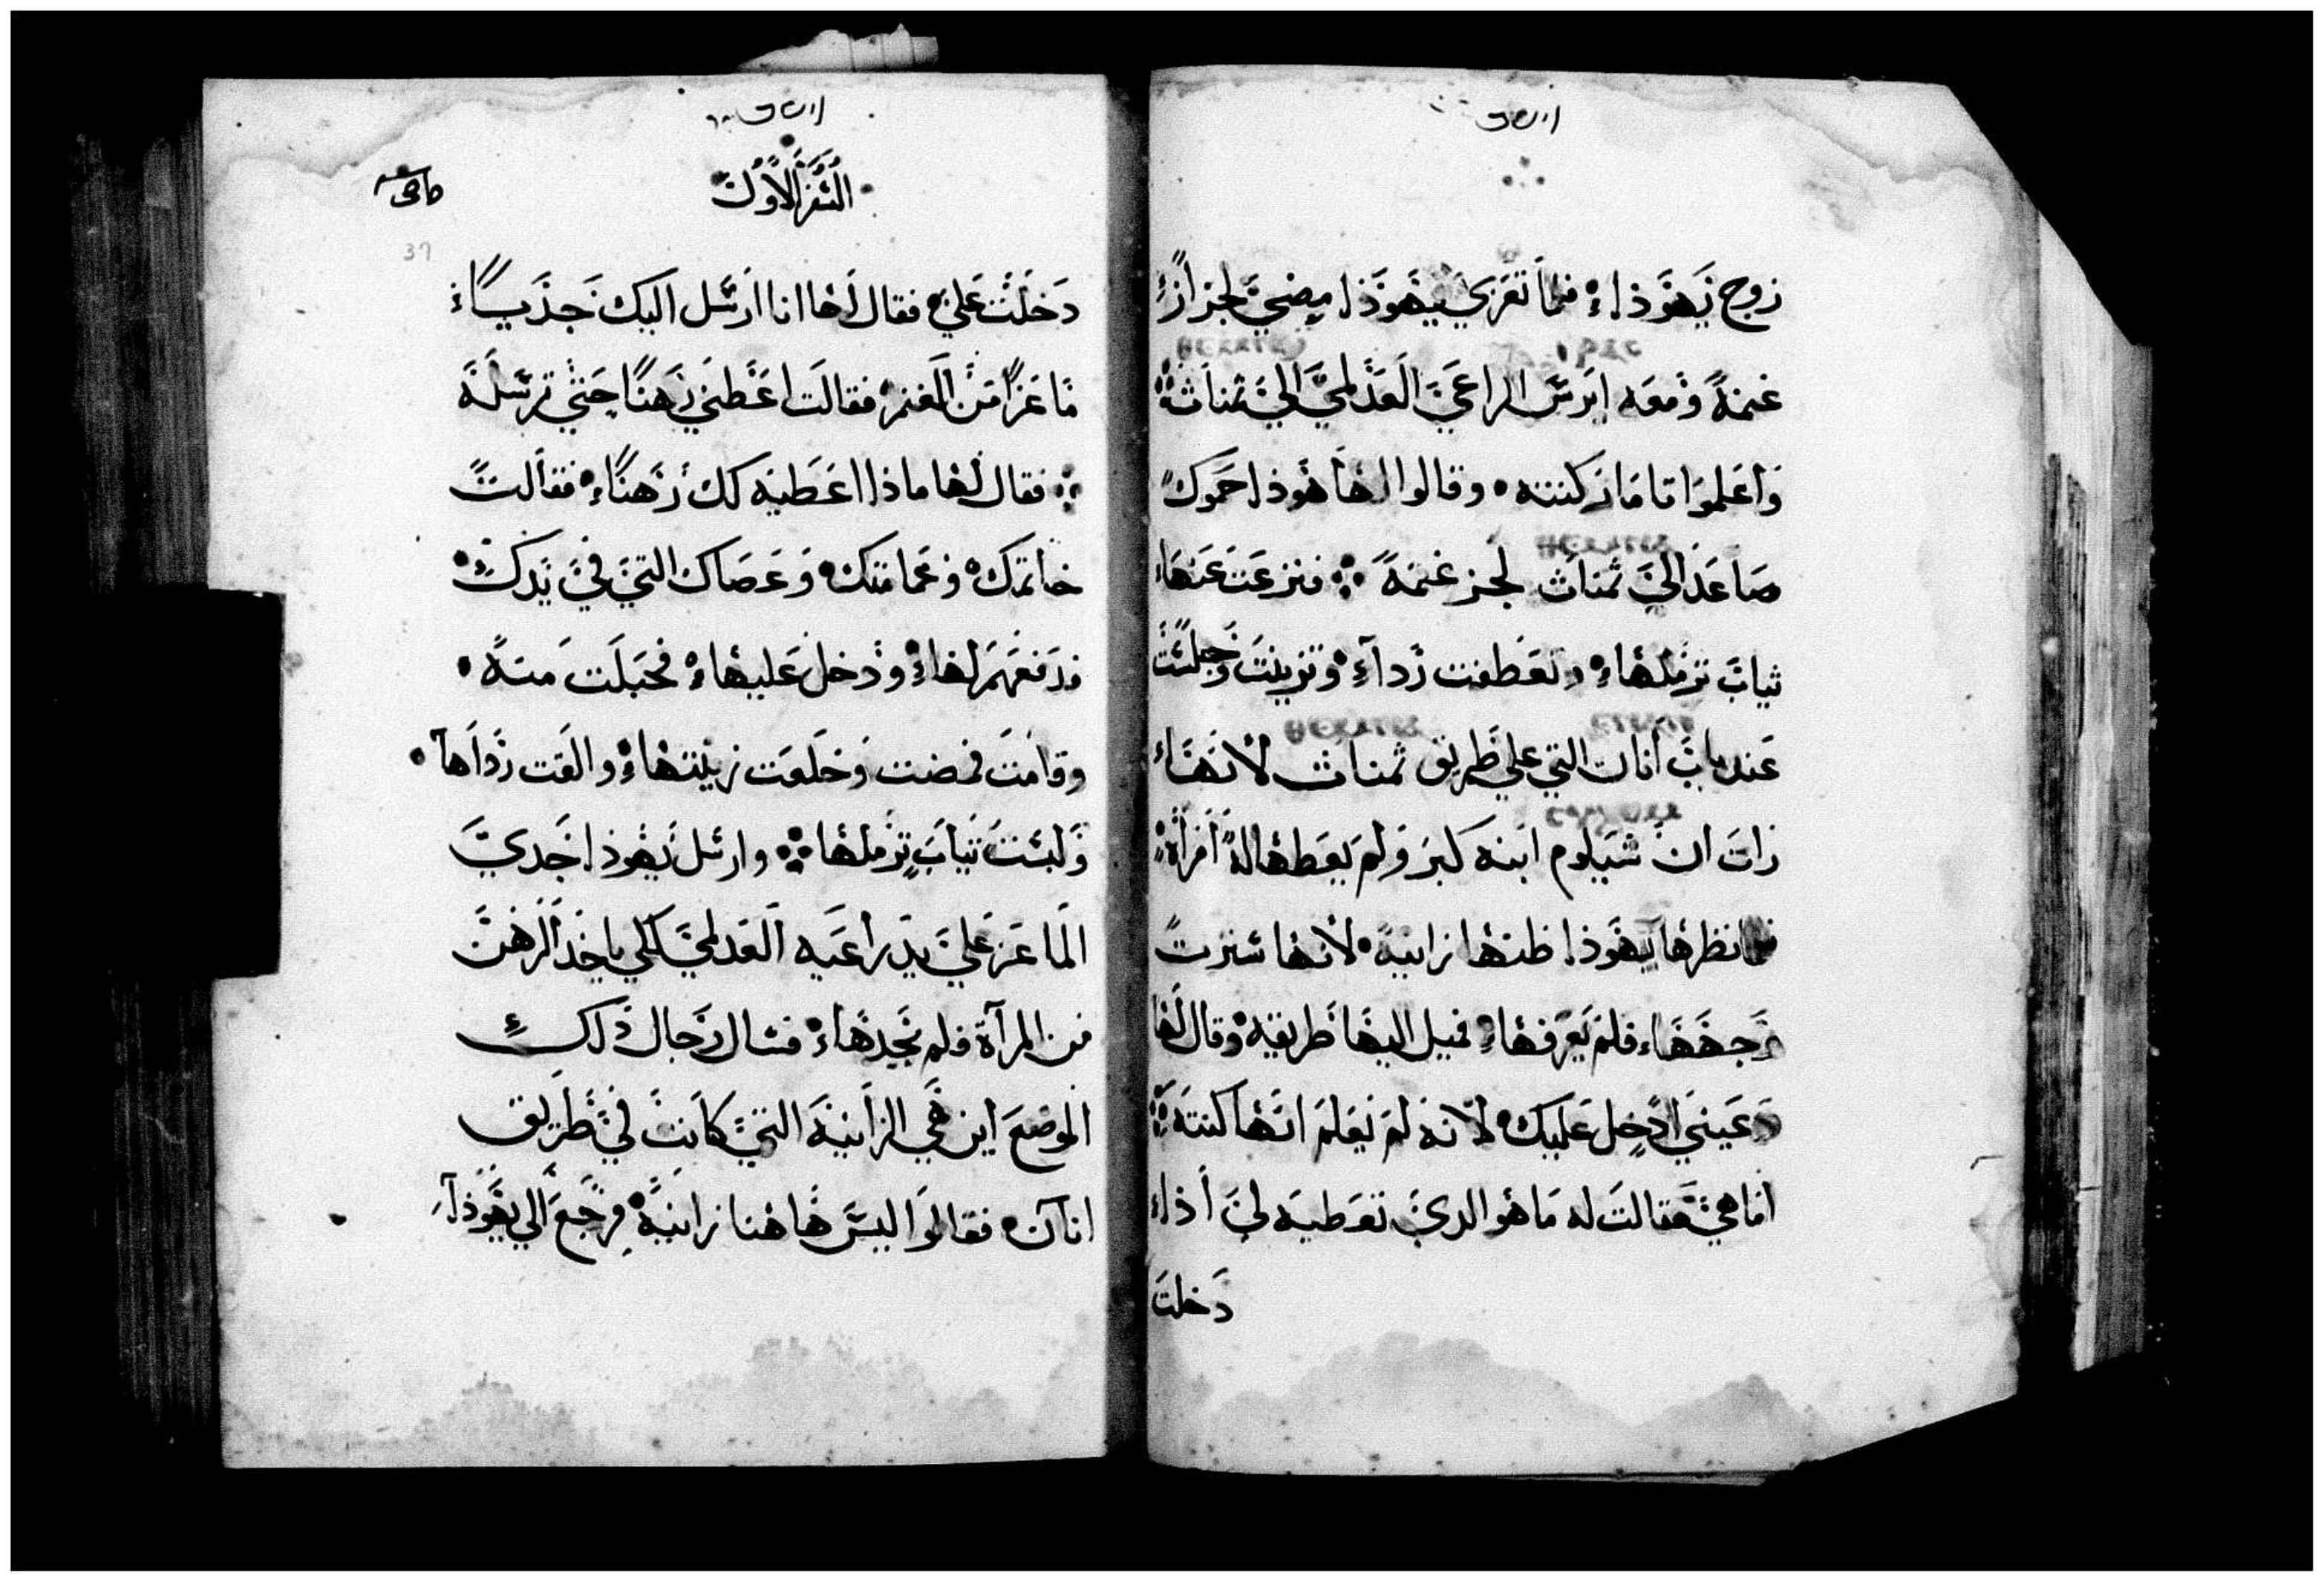 زوج يهوذاء فلما تعزي يهوذا مضي لجزاز
غنمة ومعه ايرس الراعي العدلمي الي ثمناث
واعلموا تامار كنته وقالوا لها هوذا حموك
صاعد الي ثمناث لجز غنمة فنزعت عنها
ثياب ترملها وتعطفت رداء وتزينت وجلست
عند باب انان التي علي طريق ثمناث لانها
رات ان شيلوم ابنه كبر ولم يعطها له امراة
فلما نظرها يهوذا ظنها زانية لانها سترت
وجهها فلم يعرفها فميل اليها طريقه وقال لها
دعيني ادخل عليك لانه لم يعلم انها كنته
اما هي فقالت له ما هو الدي تعطيه لي اذا
دخلت
السفر الاول
37
دخلت علي فقال لها انا ارسل اليك جديا
ماعزا من الغنم فقالت اعطني رهنا حتي ترسله
فقال لها ماذا اعطيه لك رهنا فقالت
خاتمك وعمامتك وعصاك التي في يدك
فدفعهم لها ودخل عليها فحبلت منه
وقامت فمضت وخلعت زينتها والقت رداها
ولبست ثياب ترملها وارسل يهوذا جدي
الماعز علي يد راعيه العدلمي لكي ياخد الرهن
من المرآة فلم يجدها فسال رجال دلك
الموضع اين هي الزانية التي كانت في طريق
انآن فقالوا ليس هاهنا زانية فرجع الي يهوذا